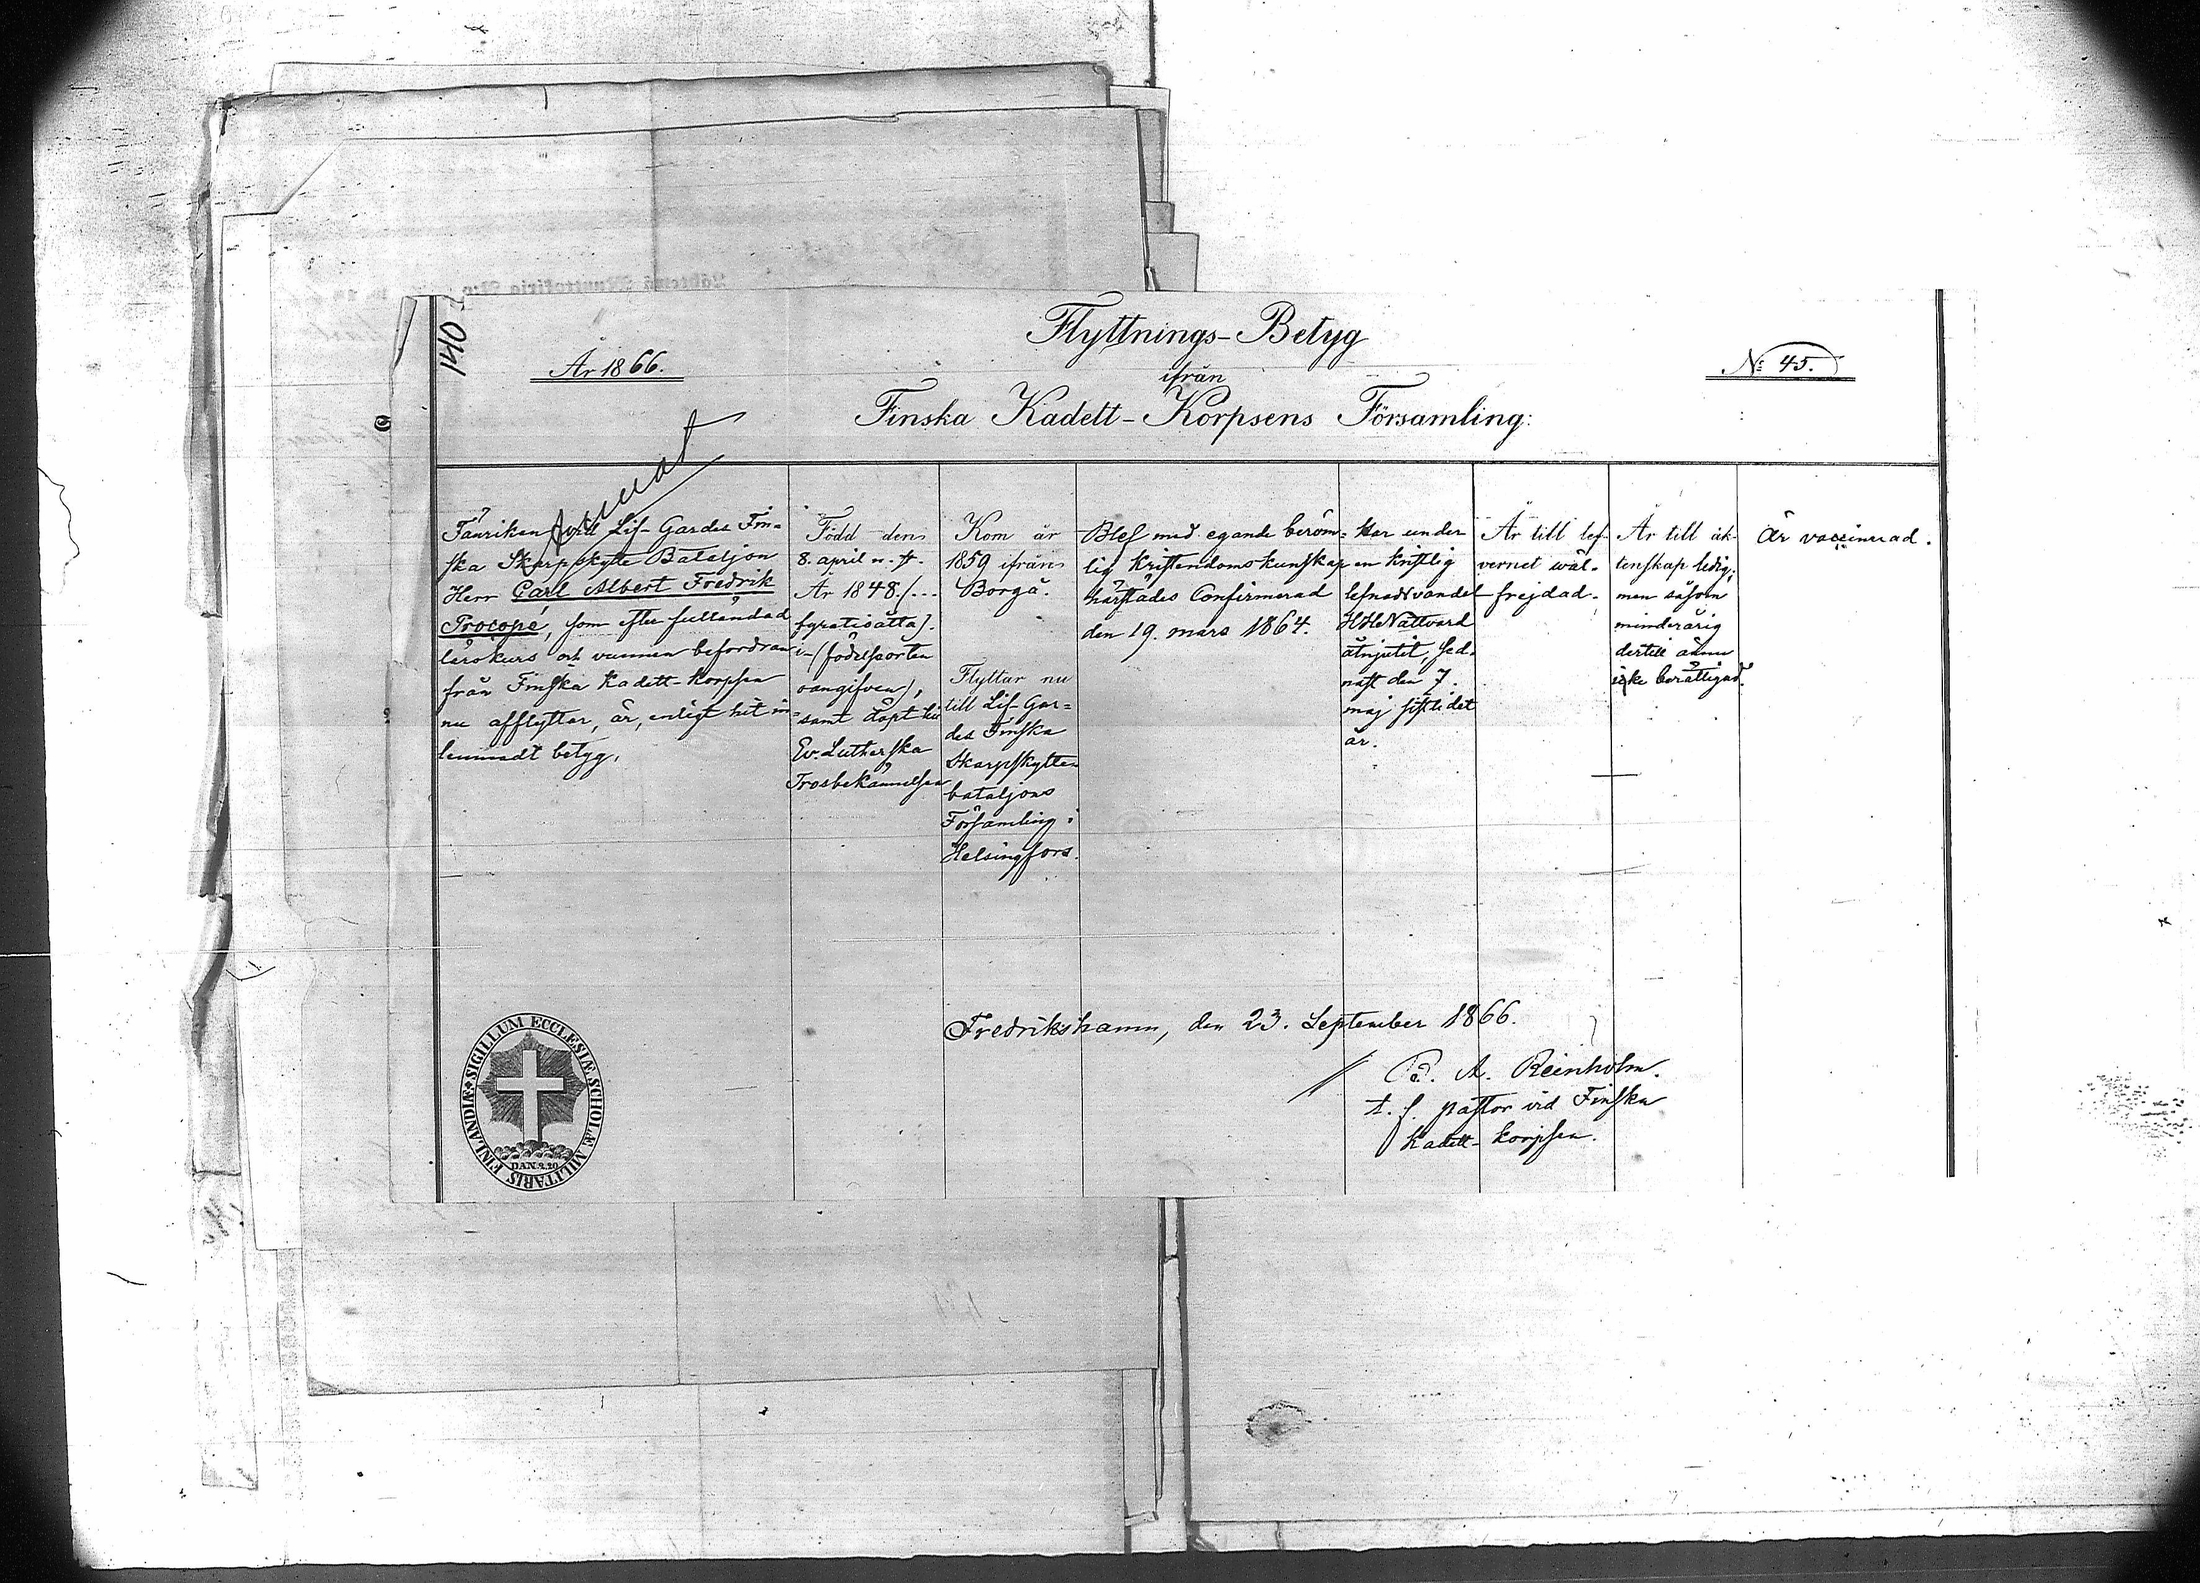 140
År 1866.
Flyttnings-Betyg
ifrån
Finska Kadett-Korpsens Församling:
No: 45.
Fänriken vid Lif-Gardes Fin-
ska Skarpskytte Bataljon
Herr Carl Albert Fredrik
Procopé, som efter fulländad
lärokurs och vunnen befordran
från Finska Kadett-korpsen
nu afflyttar, är, enligt hit in-
lemnadt betyg,
Född den
8. april n. st.
År 1848. (...
fyratioåtta).
i - (födelseorten
oangifven),
samt döpt till
Ev. Lutherska
Trosbekännelsen
Kom år
1859 ifrån
Borgå.
Flyttar nu
till Lif-Gar=
des Finska
Skarpskytte
bataljons
Församling i
Helsingfors.
Blef med egande beröm=
lig Kristendomskunskap
härstädes Confirmerad
den 19. mars 1864.
Har under
en kristlig
lefnadsvandel
HHe Nattvard
åtnjutit, sed-
nast den 7.
maj sistlidet
år.
Är till lef-
vernet wäl-
frejdad.
Är till äk-
tenskap ledig;
men såsom
minderårig
dertill ännu
icke berättigad.
Är vaccinerad.
Fredrikshamn, den 23. September 1866.
A. Reinholm.
t. f. pastor vid Finska
Kadett-korpsen.
FINLANDIÆ SIGILLUM ECCLESIÆ SCHOLÆ MILITARIS
DAN.2.20